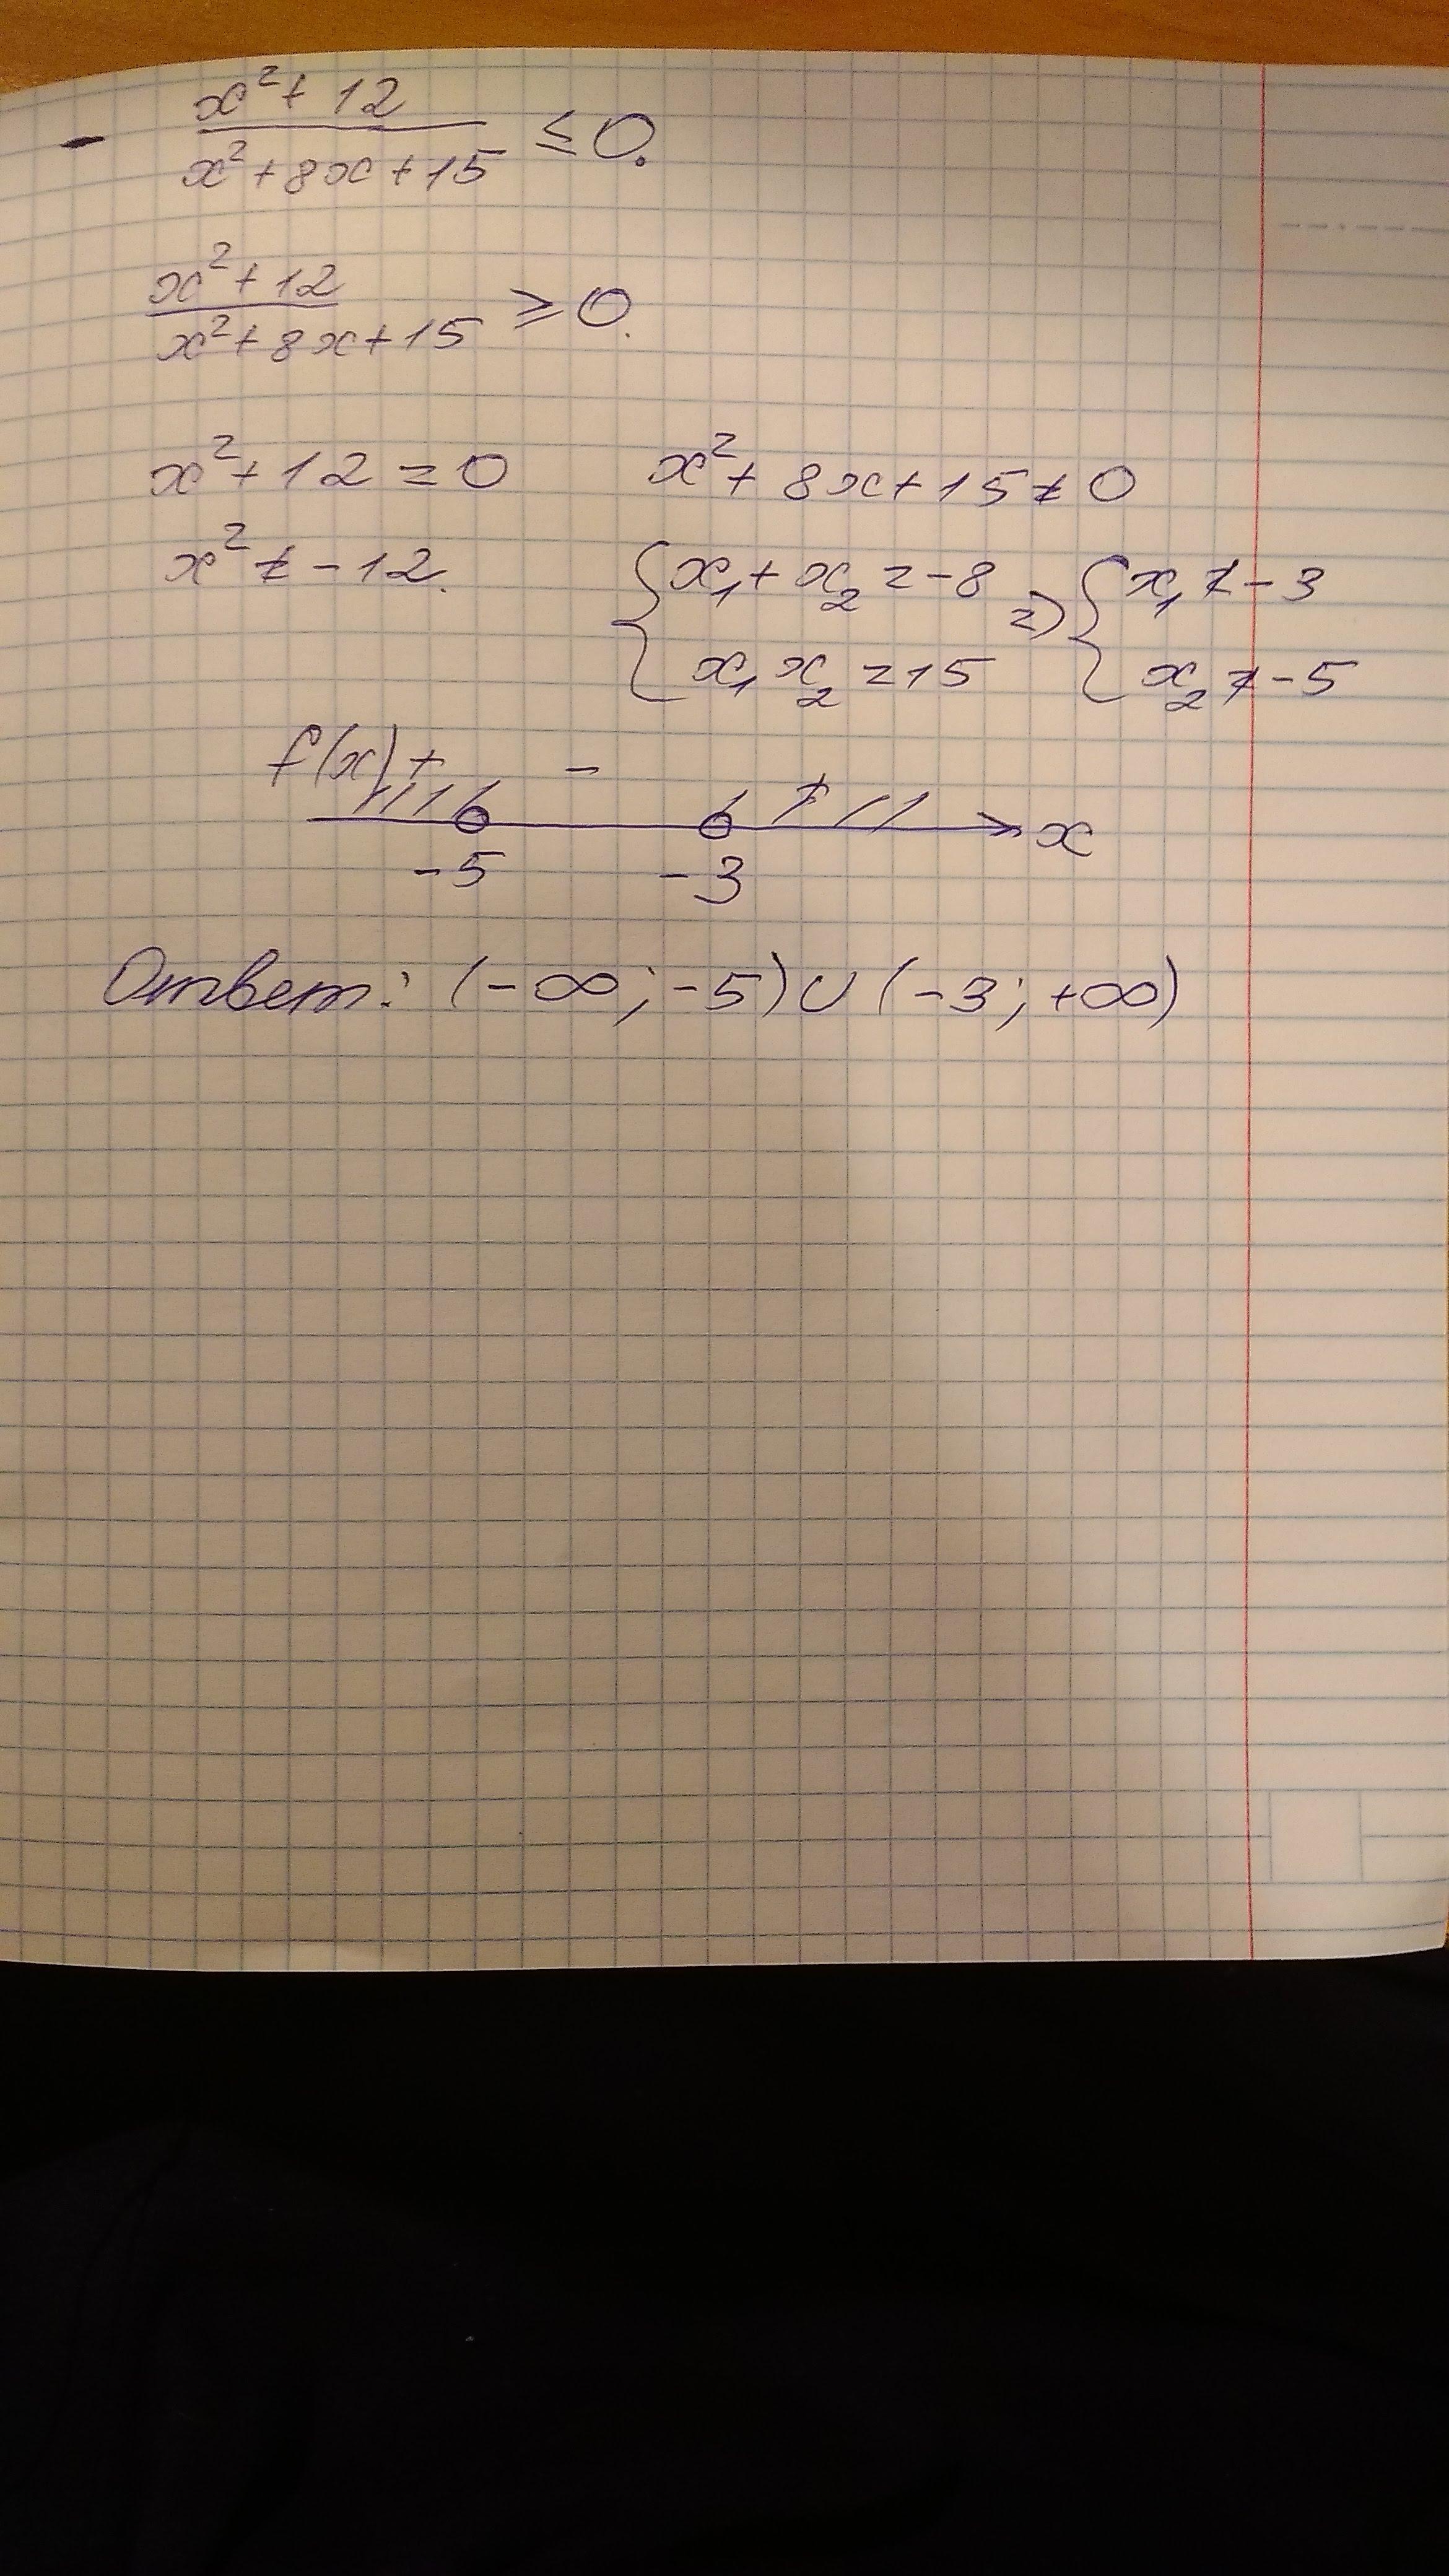 - (x² + 12)/(x² + 8x + 15) ≤ 0.
(x² + 12)/(x² + 8x + 15) ≥ 0.
x² + 12 = 0 x² + 8x + 15 ≠ 0
x² ≠ -12. { x₁ + x₂ = -8 => { x₁ ≠ -3
x₁ x₂ = 15 x₂ ≠ -5
f(x) + - +
x
-5 -3
Ответ: (-∞; -5) ∪ (-3; +∞)